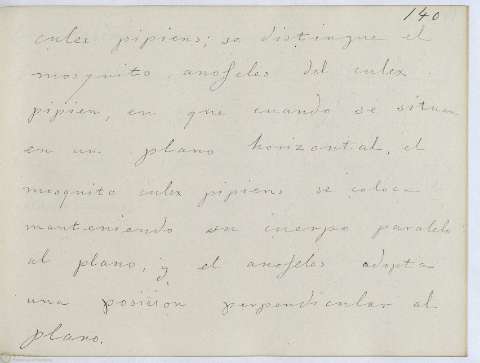 140
culex pipiens; se distingue el
mosquito anofeles del culex
pipien, en que cuando se situan
en un plano horizontal, el
mosquito culex pipiens se coloca
manteniendo su cuerpo paralelo
al plano, y el anofeles adopta
una posición perpendicular al
plano.